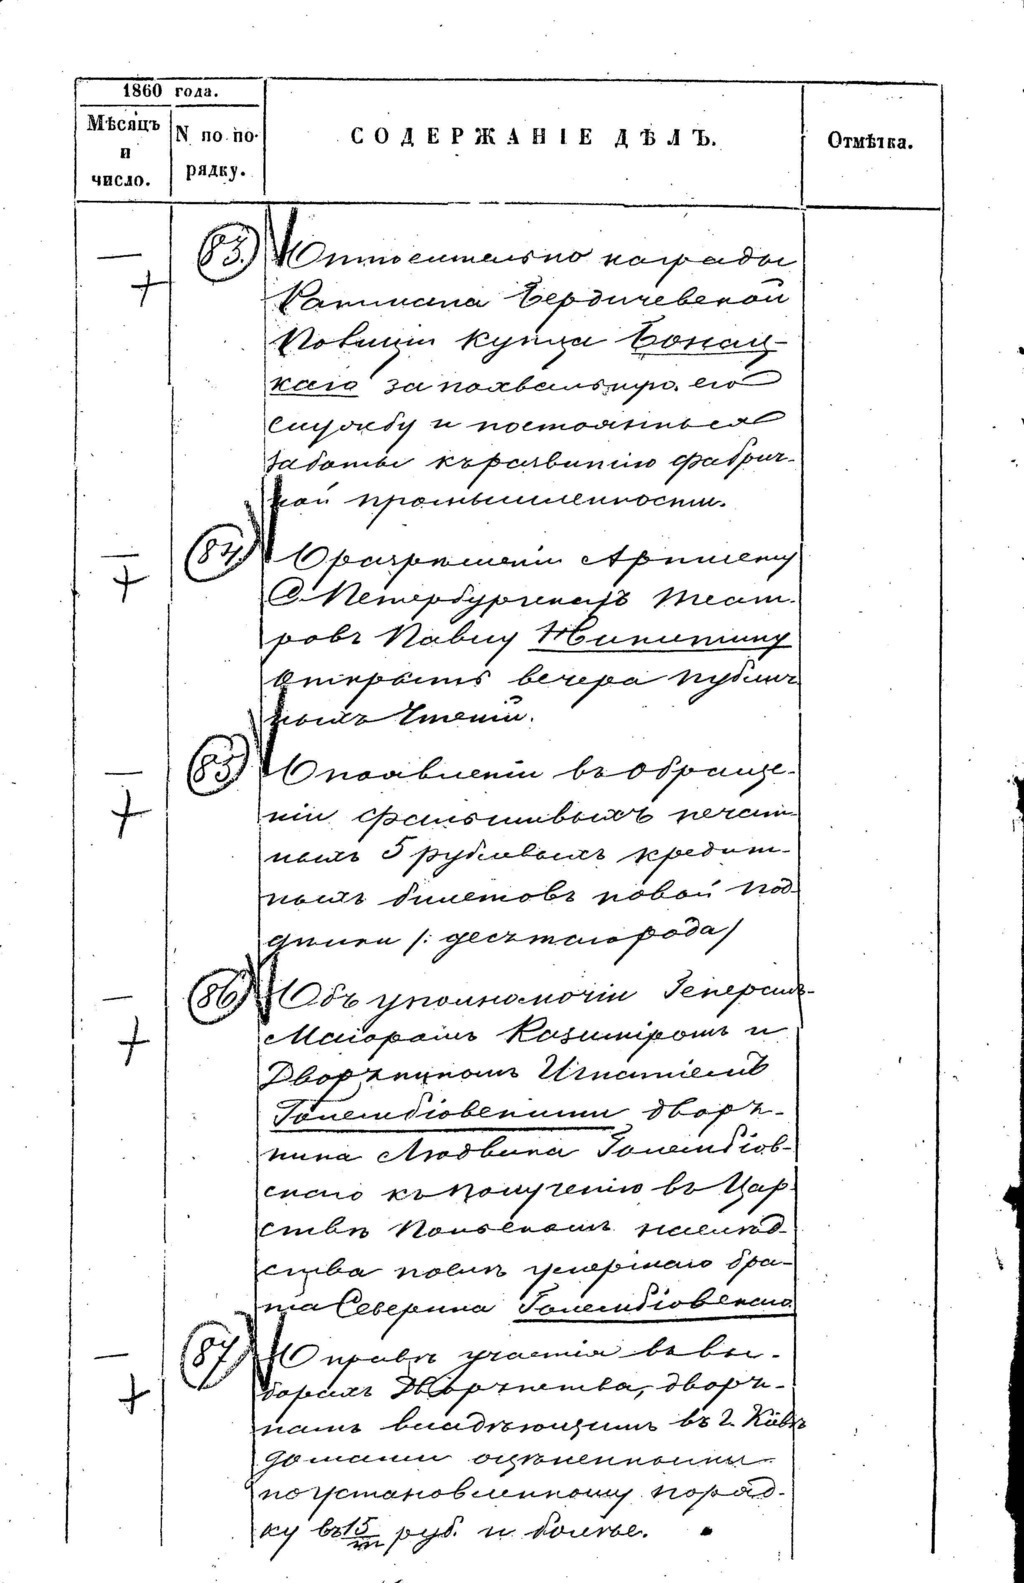 1860 года.
Мѣсяцъ и число.
N по по-рядку.
СОДЕРЖАНІЕ ДѢЛЪ.
Отмѣтка.
83. Относительно награды
Ратмана Бердичевской
Полиціи купца Бонац-
каго за похвальную его
службу и постоянныя
заботы къ развитію фабрич-
ной промышленности.
84. О разрѣшеніи Артисту
С. Петербургскихъ Теат-
ровъ Павлу Никитину
открыть вечера публич-
ныхъ Чтеній.
85. О появленіи въ обраще-
ніи фальшивыхъ печат-
ныхъ 5 рублевыхъ кредит-
ныхъ билетовъ новой под-
дѣлки /: десятаго рода/
86. Объ уполномочіи Генералъ-
Маіоромъ Казиміромъ и
Дворяниномъ Игнатіемъ
Голембіовскими дворя-
нина Людвика Голембіов-
скаго къ полученію въ Цар-
ствѣ Польскомъ наслѣд-
ства послѣ умершаго бра-
та Северина Голембіовскаго
87. О правѣ участія въ вы-
борахъ Дворянства, дворя-
намъ владѣющимъ въ г. Кіевѣ
домами оцѣненными
по установленному поряд-
ку въ 15/m руб. и болѣе.